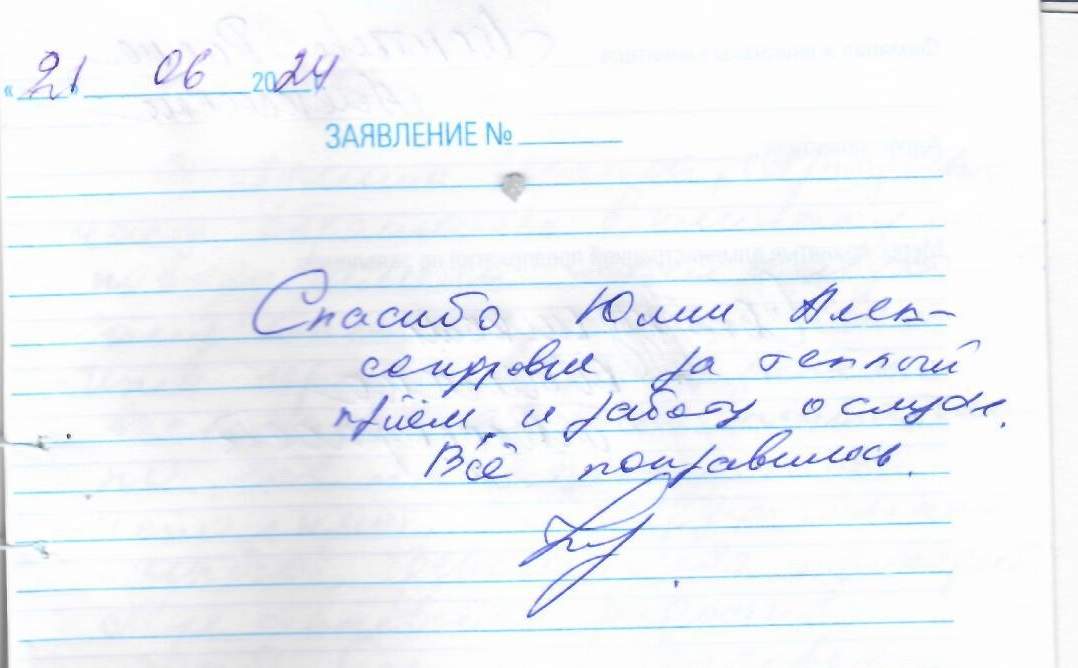 «21» 06 2024
ЗАЯВЛЕНИЕ №
Спасибо Юлии Алек-
сандровне за теплый
приём и заботу о слухе.
Всё понравилось.